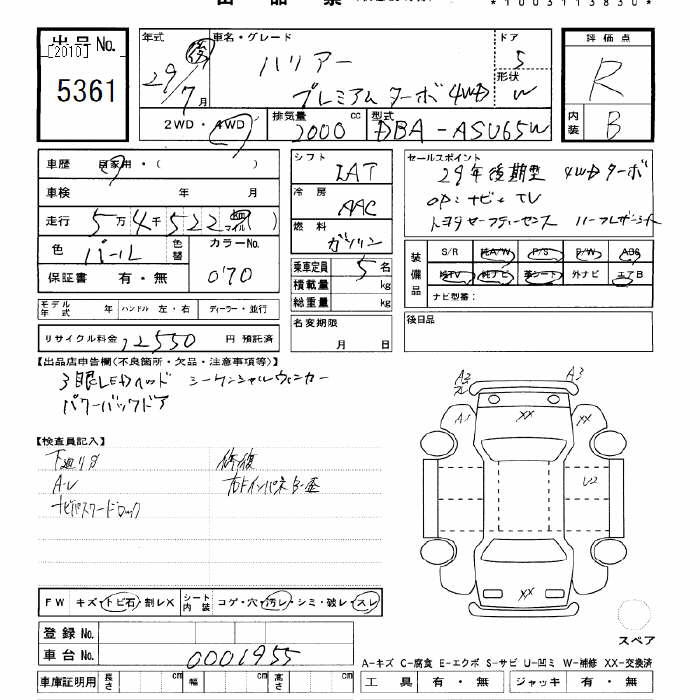 *1003113830*
出品 No. [2010]
5361
年式 後 29/7月
車名・グレード ハリアー
プレミアム ターボ 4WD
ドア 5
形状 W
評価点 R
内装 B
2WD・4WD
排気量 2000 cc
型式 DBA-ASU65W
車歴 自家用・( )
車検 年 月
走行 5万4千522
色 パール 色替
カラーNo. 070
保証書 有・無
モデル年式 年 ハンドル 左・右 ディーラー・並行
リサイクル料金 12550 円 預託済
シフト IAT
冷房 AAC
燃料 ガソリン
乗車定員 5名
積載量 kg
総重量 kg
名変期限 月 日
セールスポイント
29年後期型 4WDターボ
OP:ナビ+TV
トヨタセーフティーセンス ハーフレザーシート
装備品 S/R 純A/W P/S P/W ABS
純TV 純ナビ 革シート 外ナビ エアB
ナビ型番:
後日品
【出品店申告欄(不良箇所・欠品・注意事項等)】
3眼LEDヘッド シーケンシャルウィンカー
パワーバックドア
【検査員記入】
下廻りサ 修復
A-U 右Fインパネ
ナビパスワードロック
A2 A3
A1 XX
U2
XX
FW キズ・トビ石・割レX シート内装 コゲ・穴・汚レ・シミ・破レ・スレ
登録 No.
車台 No. 0001955
スペア
A-キズ C-腐食 E-エクボ S-サビ U-凹ミ W-補修 XX-交換済
車庫証明用 長さ cm 幅 cm 高さ cm 工具 有・無 ジャッキ 有・無